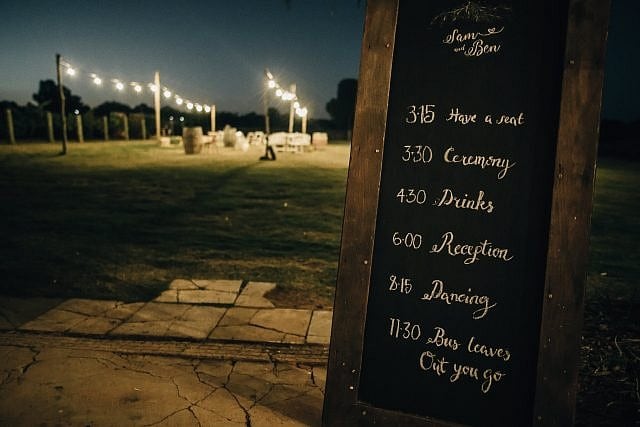 Sam
and Ben
3·15 Have a seat
3·30 Ceremony
4·30 Drinks
6·00 Reception
8·15 Dancing
11·30 Bus leaves
Out you go